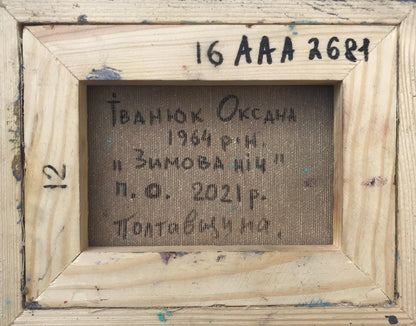 16 AAA 2681
12
Іванюк Оксана
1964 р.н.
„Зимова ніч"
п.о. 2021 р.
Полтавщина.